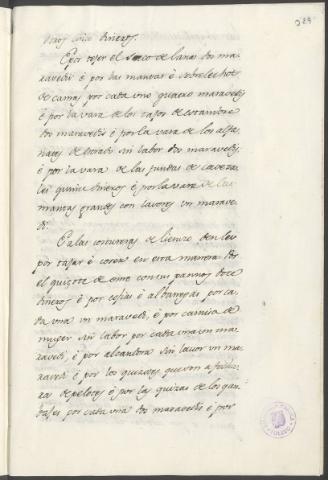 otros cinco dineros.
E por tejer el saco de lanas dos ma-
ravedis é por las mantas é sobrelechos
de camas por cada uno quatro maravedis
é por la vara de los tapos de estambre
dos maravedis é por la vara de los alfa-
mares de estado sin labor dos maravedis
é por la vara de las fundas de caveza-
les quince dineros é por la vara de las
mantas grandes con lavores un marave-
di.
E a las costureras de lienzo den les
por tajar é coser en esta manera por
el quizote de ome con sus pannos doce
dineros é por cofias é albanegas por ca-
da una un maravedi, é por camisa de
muger sin labor por cada una un ma-
ravedi, é por alcandora sin lavor un ma-
ravedi é por los quizotes que son a
de pelotes é por las de los gan-
bajes por cada una dos maravedis é por